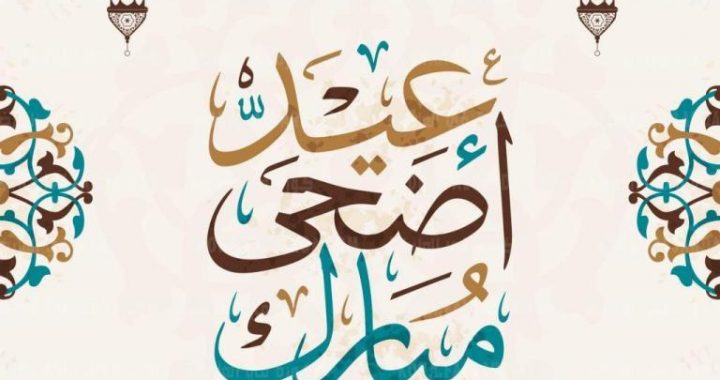 عيد
أضحى
مُبَارك